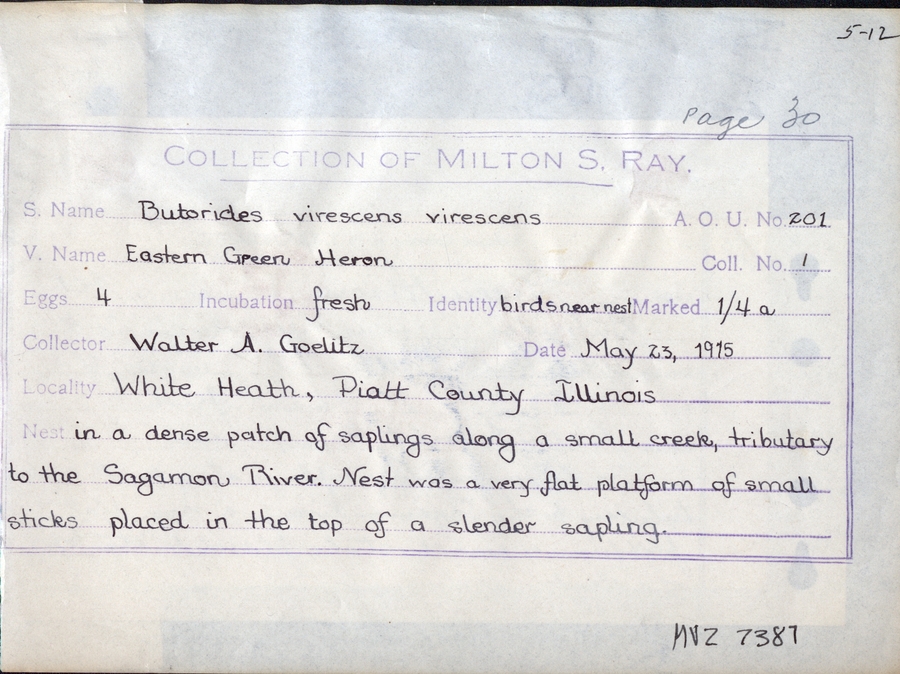 5-12
Page 30
COLLECTION OF MILTON S. RAY.
S. Name Butorides virescens virescens A. O. U. No. 201
V. Name Eastern Green Heron Coll. No. 1
Eggs 4 Incubation fresh Identity birds near nest Marked 1/4 a
Collector Walter A. Goelitz Date May 23, 1915
Locality White Heath, Piatt County Illinois
Nest in a dense patch of saplings along a small creek, tributary
to the Sagamon River. Nest was a very flat platform of small
sticks placed in the top of a slender sapling.
MVZ 7387